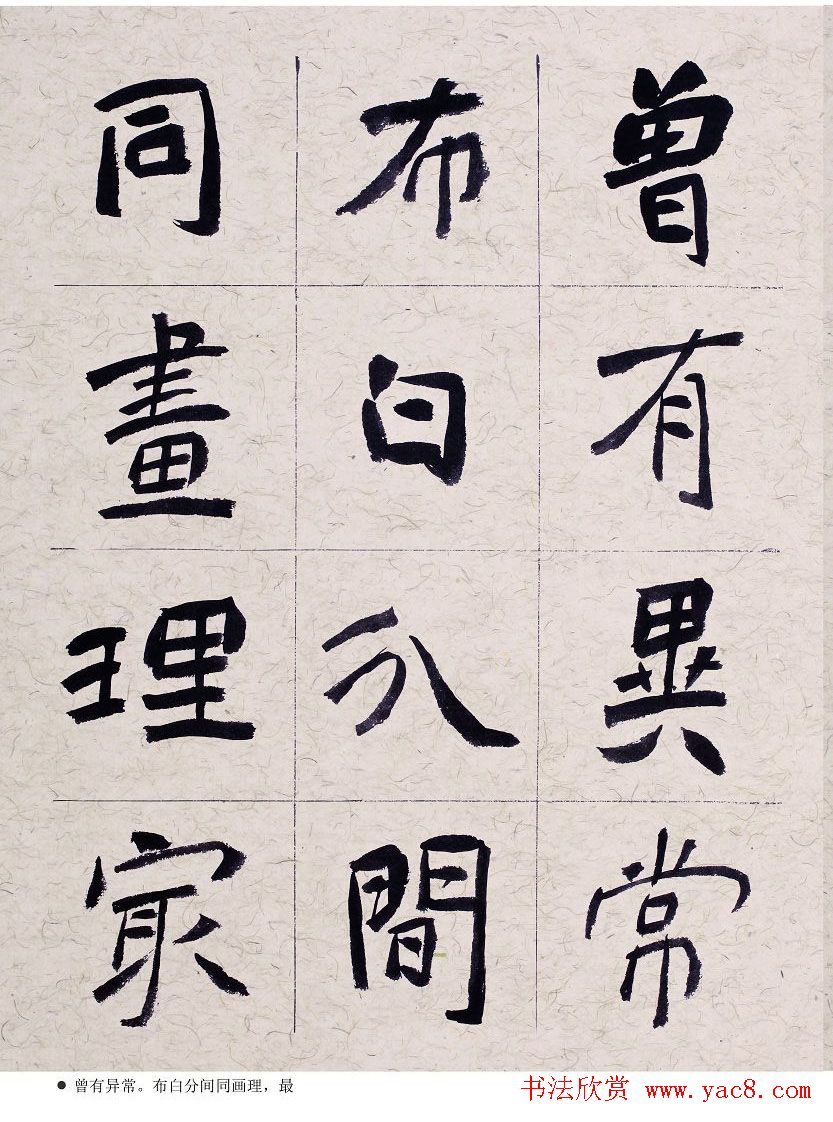 曾有異常
布白分間
同畫理㝡
●曾有异常。布白分间同画理，最
书法欣赏 www.yac8.com